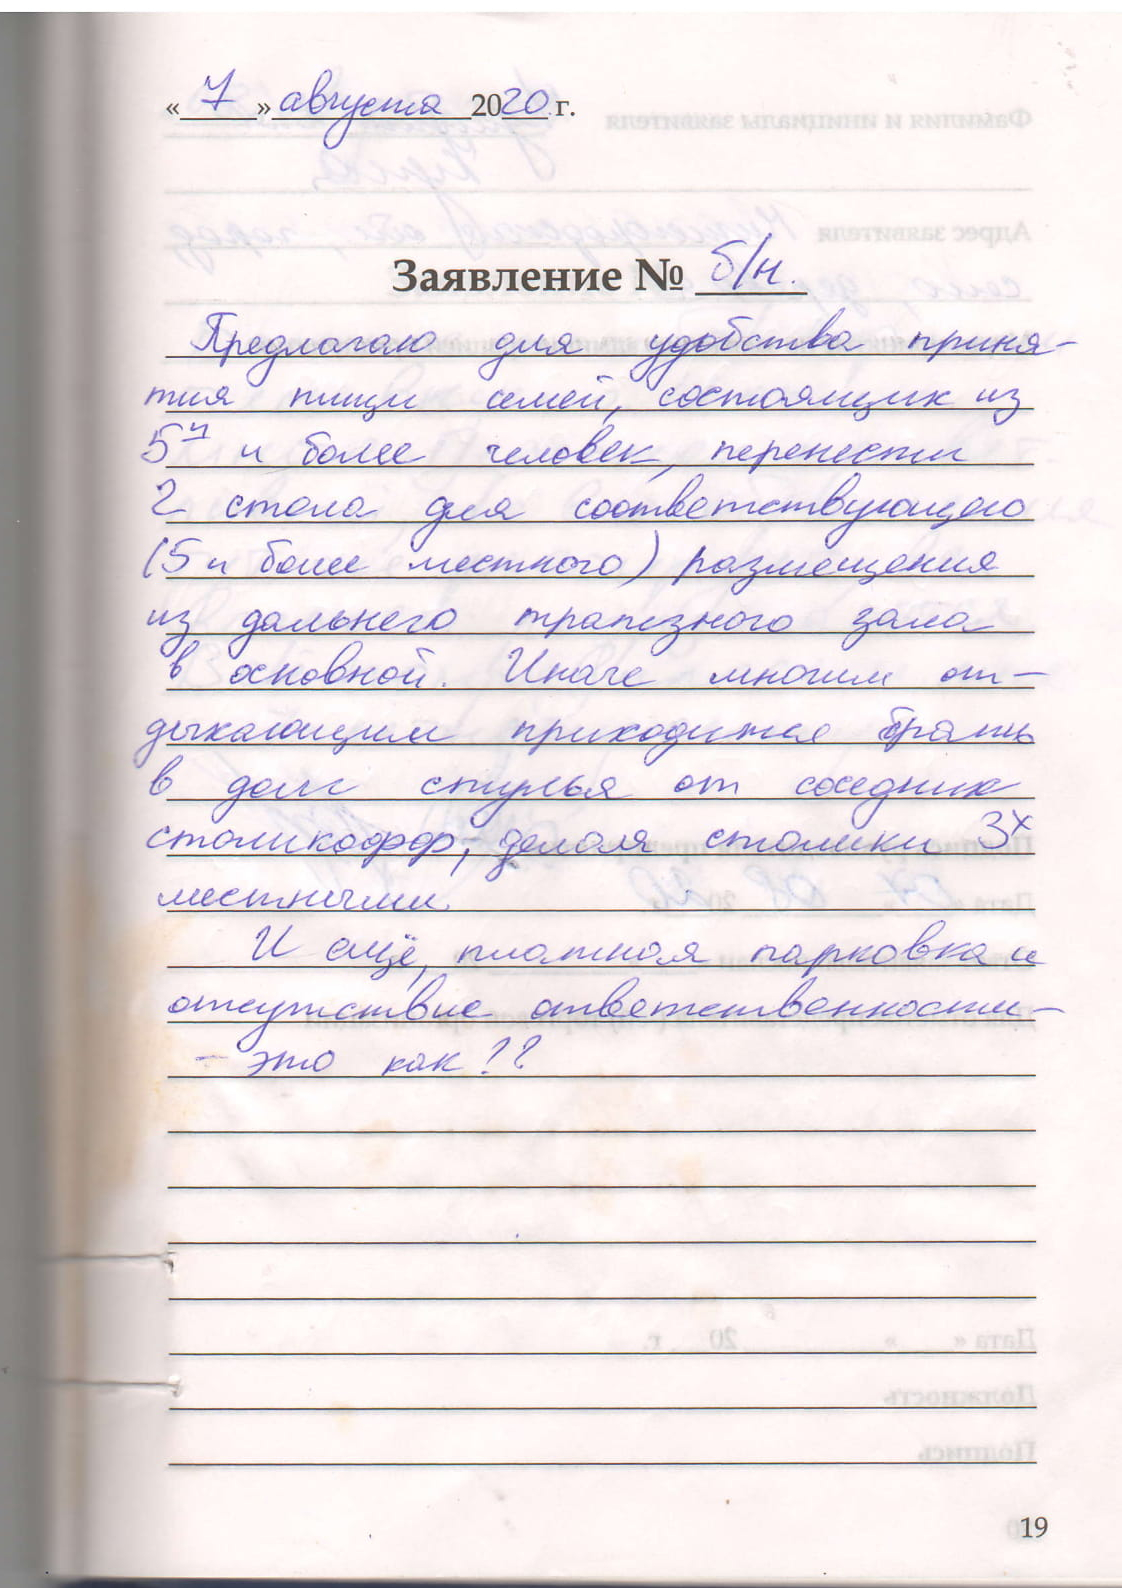 « 7 » августа 2020 г.
Заявление № б/н.
Предлагаю для удобства приня-
тия пищи семей, состоящих из
5ч и более человек, перенести
2 стола для соответствующего
(5 и более местного) размещения
из дальнего трапезного зала
в основной. Иначе многим от-
дыхающим приходится брать
в долг стулья от соседних
столикофф, делая столики 3х
местными.
И ещё, платная парковка и
отсутствие ответственности -
- это как??
19